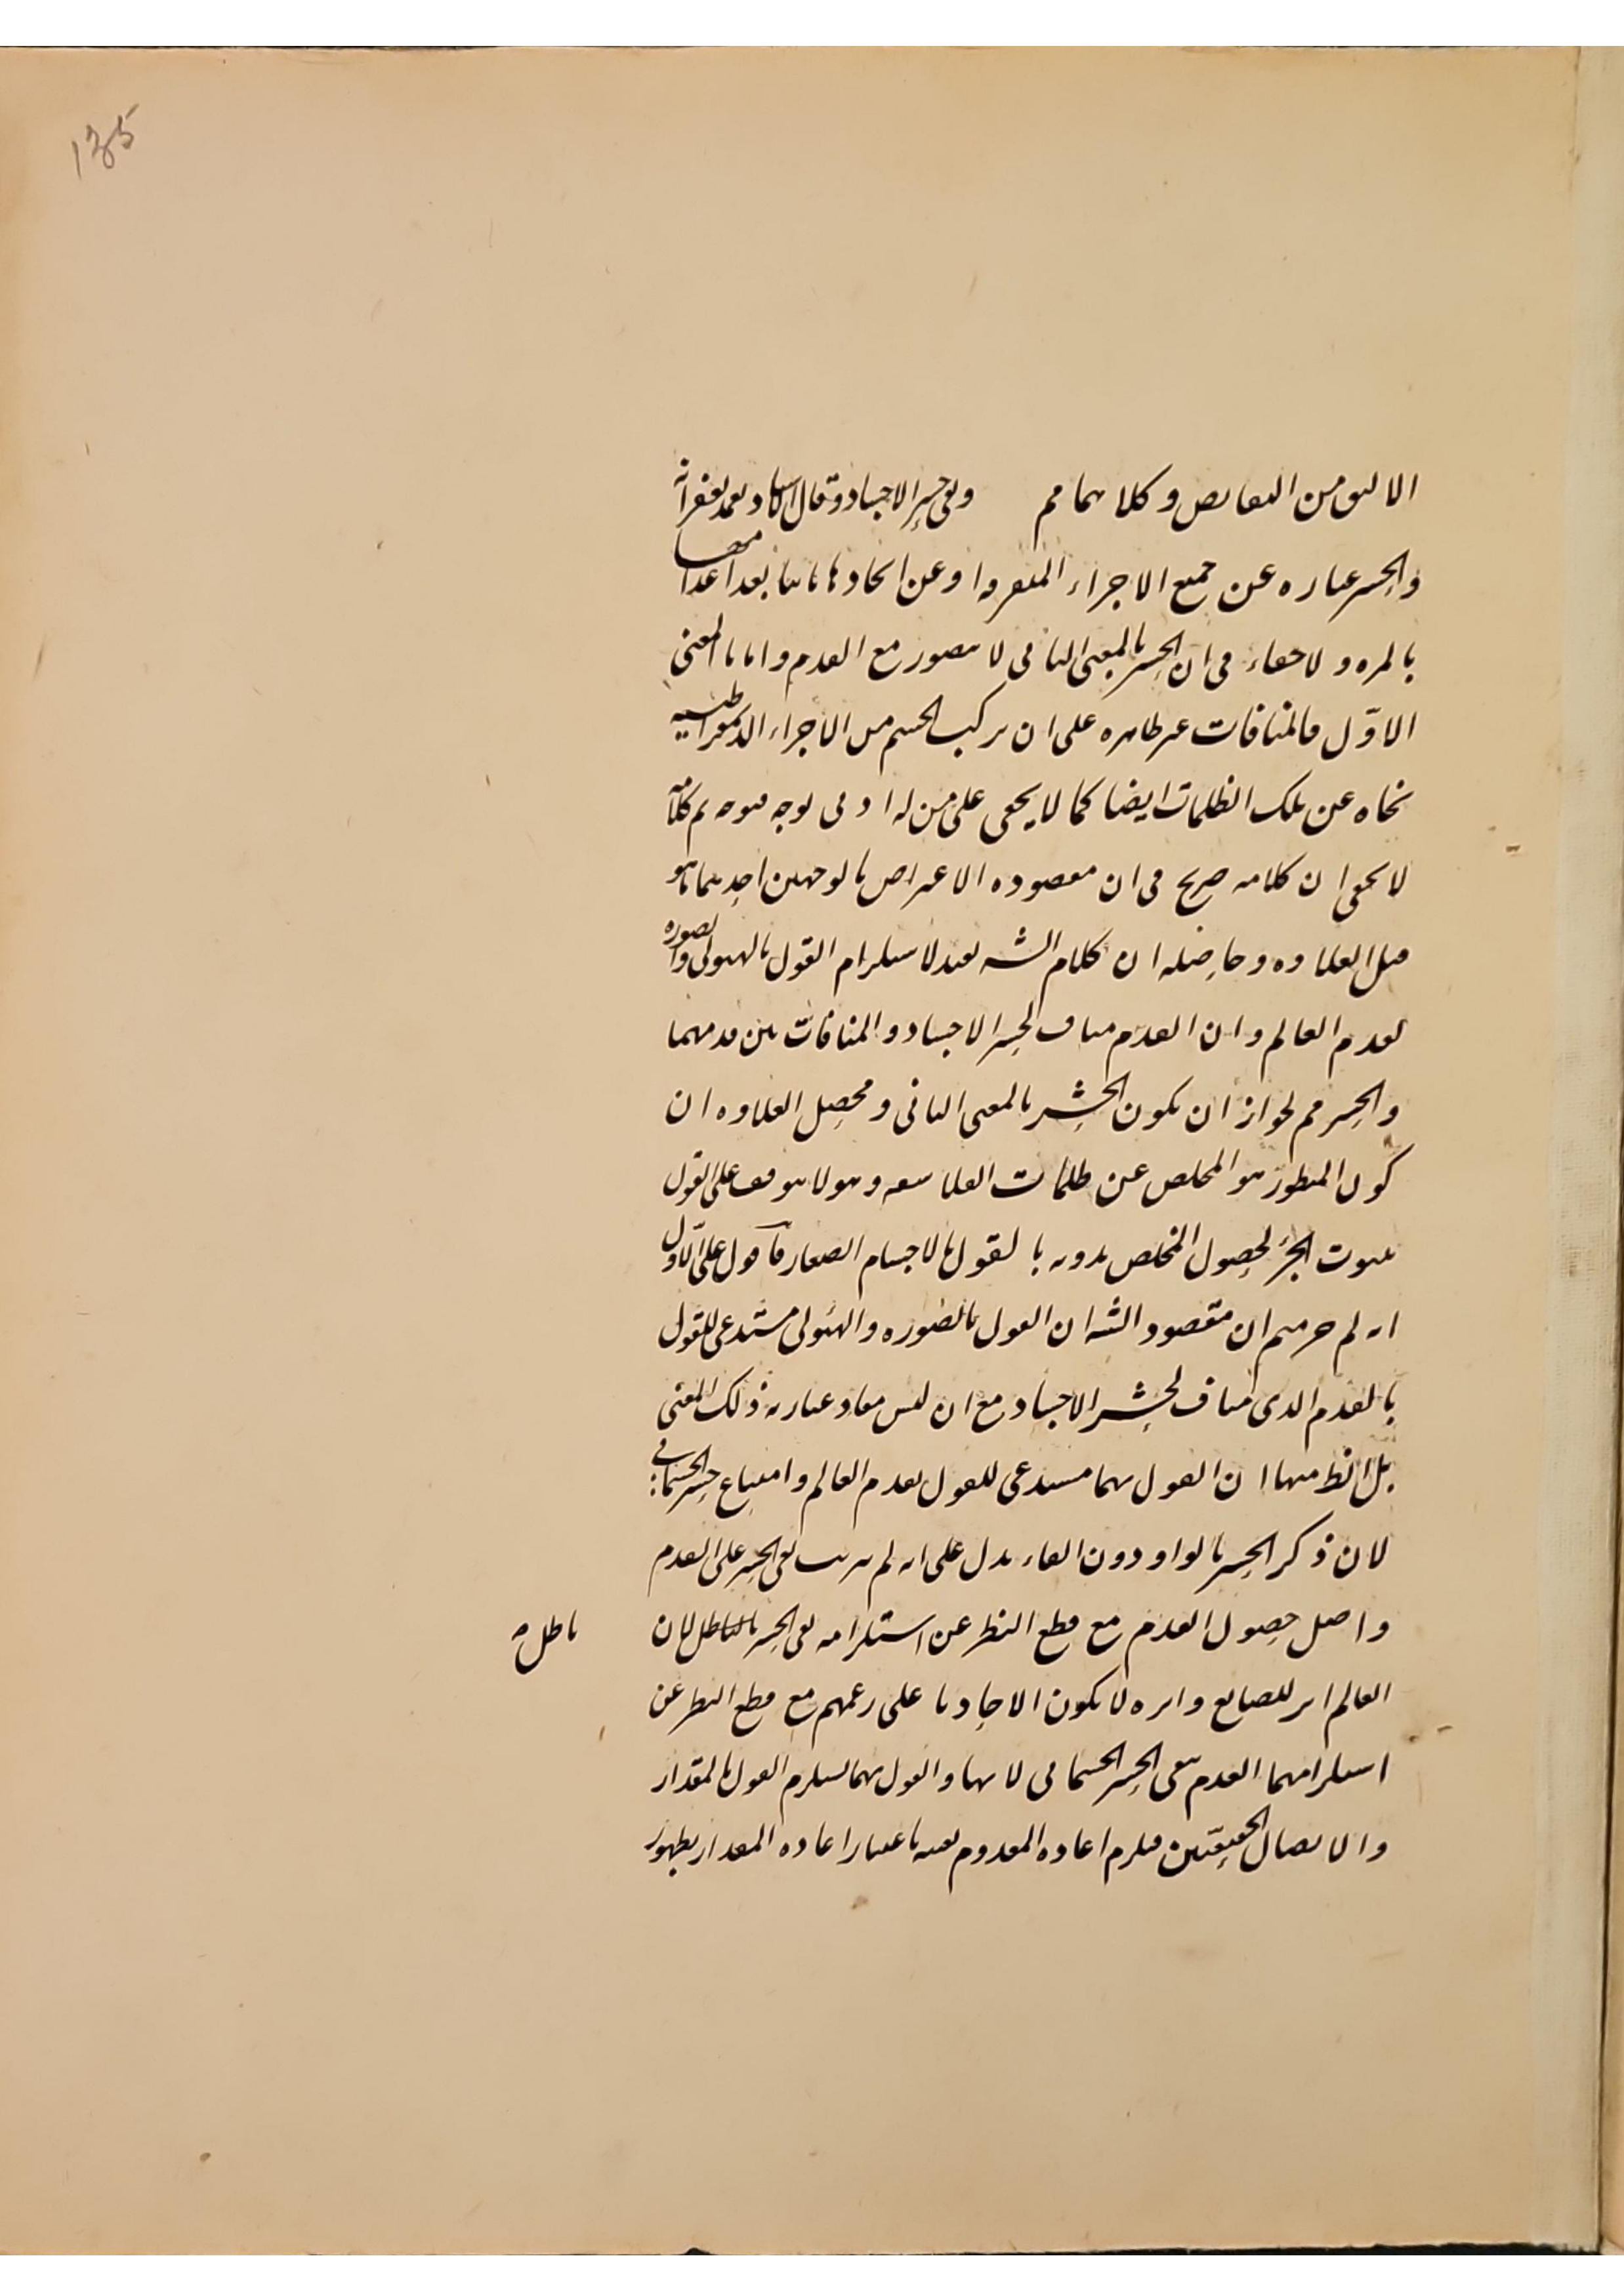 135
الاليق من النقايص وكلاهما مم ونفى حشر الاجساد وقال الاستاد بعد نقضه انه
والحشر عباره عن جمع الاجزاء المتفرقه او عن ايجادها ثانيا بعد اعدامها
بالمره ولا خفاء فى ان الحشر بالمعنى الثانى لا يتصور مع القدم واما بالمعنى
الاوّل فالمنافات غير ظاهره على ان تركب الجسم من الاجزاء الديمقراطيسيه
نجاه عن تلك الظلمات ايضا كما لا يخفى على من له ادنى توجه فتوجه تم كلامه
لا يخفى ان كلامه صريح فى ان مقصوده الاعتراض بالوجهين احدهما ما هو
قبل العلاوه وحاصله ان كلام الشه يفيد لاستلزام القول بالهيولى والصوره
لقدم العالم وان القدم مناف لحشر الاجساد والمنافات بين قدمهما
والحشر مم لجواز ان يكون الحشر بالمعنى الثانى ومحصل العلاوه ان
كون المنظور هو المخلص عن ظلمات الفلاسفه وهو لا يتوقف على القول
بثبوت الجزء لحصول المخلص بدونه بالقول بالاجسام الصغار فآقول على الاوّل
انه لم حرمتم ان مقصود الشه ان القول بالصوره والهيولى مستدعى للقول
بالقدم الذى مناف لحشر الاجساد مع ان ليس مفاد عبارته ذلك المعنى
بل الظ منها ان القول بهما مستدعى للقول بقدم العالم وامتناع حشر الجسمانى
لان ذكر الحشر بالواو دون الفاء يدل على انه لم يترتب نفى الحشر على القدم
واصل حصول القدم مع قطع النظر عن استلزامه نفى الحشر باطل لان
باطل
العالم اثر للصانع واثره لا يكون الا حادثا على زعمهم مع قطع النظر عن
استلزامهما القدم نفى الحشر الجسمانى لانها والقول بهما يستلزم القول بالمقدار
والاتصال الحقيقيين فيلزم اعاده المعدوم بعينه باعتبار اعاده المقدار بظهور